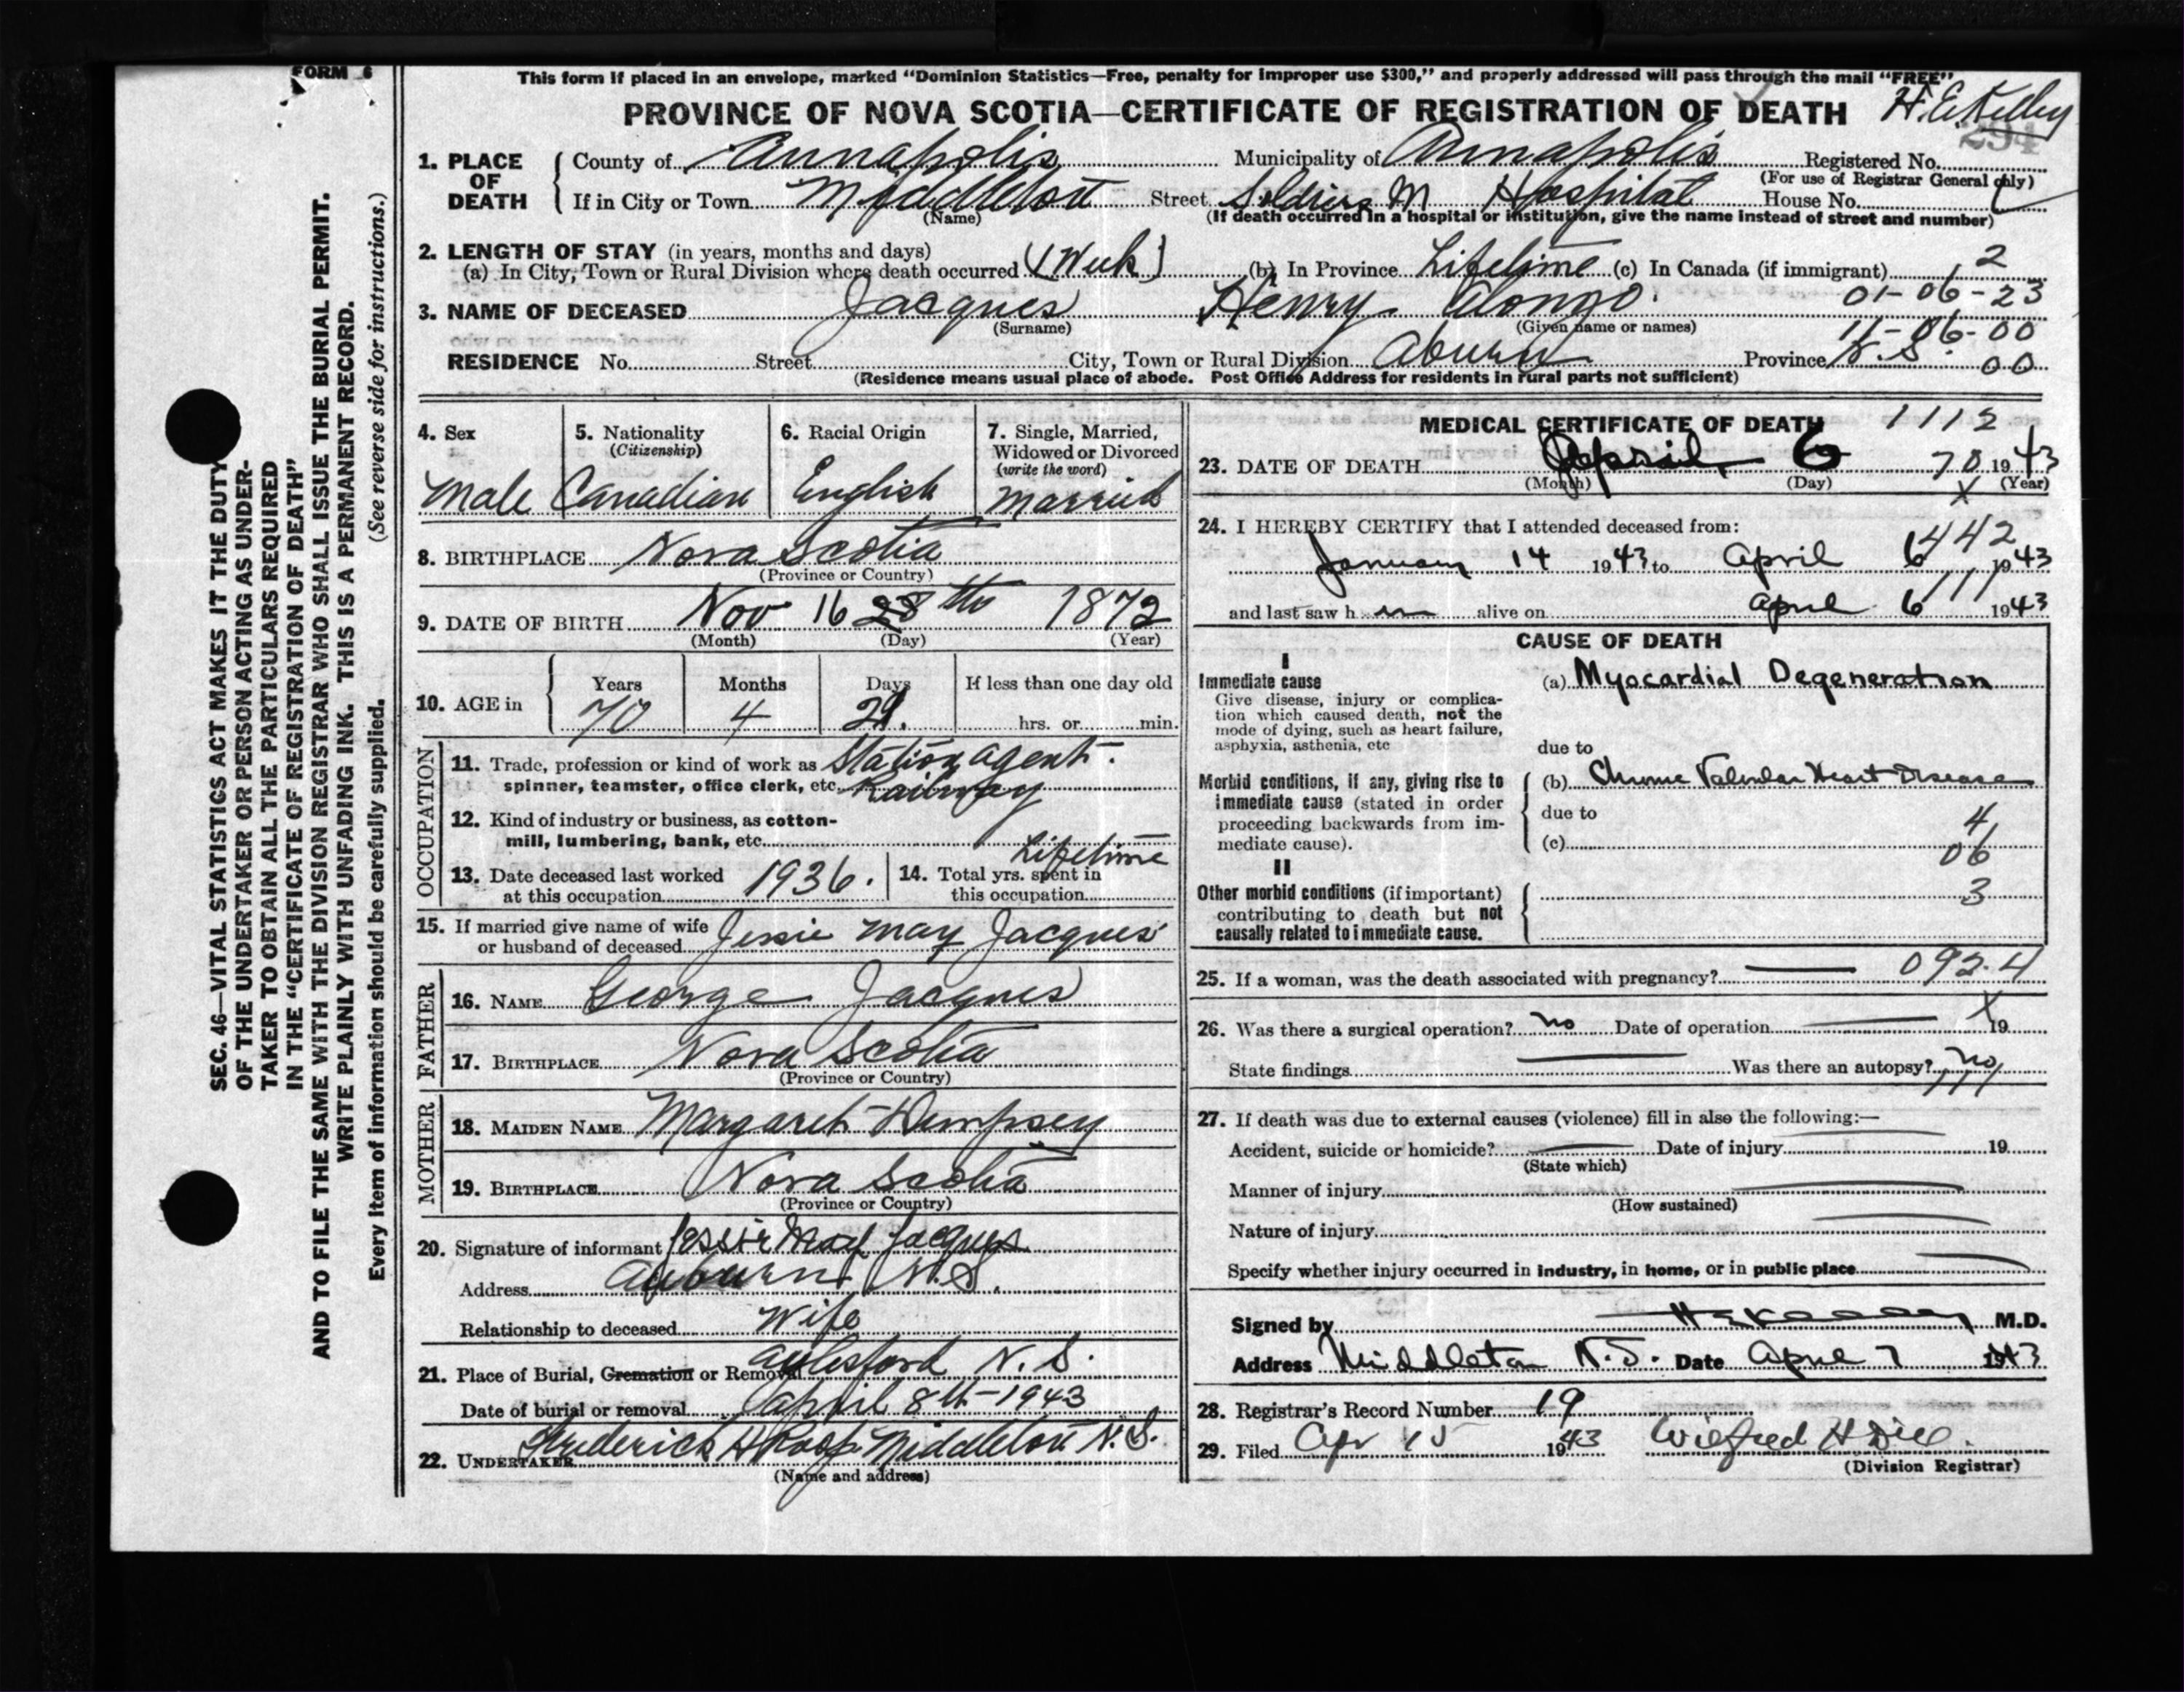 FORM 6
This form if placed in an envelope, marked “Dominion Statistics—Free, penalty for improper use $300,” and properly addressed will pass through the mail “FREE”
PROVINCE OF NOVA SCOTIA—CERTIFICATE OF REGISTRATION OF DEATH
H.E. Kelley
294
1. PLACE OF DEATH { County of Annapolis Municipality of Annapolis Registered No.
(For use of Registrar General only)
If in City or Town Middleton Street Soldiers M Hospital House No.
(Name) (If death occurred in a hospital or institution, give the name instead of street and number)
2. LENGTH OF STAY (in years, months and days)
(a) In City, Town or Rural Division where death occurred (1 Week) (b) In Province Lifetime (c) In Canada (if immigrant) 2
01-06-23
3. NAME OF DECEASED Jacques Henry Alongo.
(Surname) (Given name or names)
11-06-00
RESIDENCE No. Street City, Town or Rural Division Aburn Province N.S. 00
(Residence means usual place of abode. Post Office Address for residents in rural parts not sufficient)
4. Sex
Male
5. Nationality
(Citizenship)
Canadian
6. Racial Origin
English
7. Single, Married,
Widowed or Divorced
(write the word)
Married
8. BIRTHPLACE Nova Scotia
(Province or Country)
9. DATE OF BIRTH Nov 16 28th 1872
(Month) (Day) (Year)
10. AGE in { Years Months Days If less than one day old
70 4 21. hrs. or min.
OCCUPATION
11. Trade, profession or kind of work as Station agent.
spinner, teamster, office clerk, etc. Railway
12. Kind of industry or business, as cotton-
mill, lumbering, bank, etc.
13. Date deceased last worked
at this occupation 1936.
14. Total yrs. spent in
this occupation Lifetime
15. If married give name of wife
or husband of deceased Jessie May Jacques
FATHER
16. NAME George Jacques
17. BIRTHPLACE Nova Scotia
(Province or Country)
MOTHER
18. MAIDEN NAME Margaret Dempsey
19. BIRTHPLACE Nova Scotia
(Province or Country)
20. Signature of informant Jessie May Jacques
Address Auburn N.S.
Relationship to deceased Wife
21. Place of Burial, Cremation or Removal Aylesford N.S.
Date of burial or removal April 8th-1943
22. UNDERTAKER Frederick H Roop Middleton N.S.
(Name and address)
MEDICAL CERTIFICATE OF DEATH 1112
23. DATE OF DEATH April 6 70 1943
(Month) (Day) (Year)
X
24. I HEREBY CERTIFY that I attended deceased from:
442
January 14 1943 to April 6 1943
111
and last saw him alive on April 6 1943
CAUSE OF DEATH
I
Immediate cause
Give disease, injury or complica-
tion which caused death, not the
mode of dying, such as heart failure,
asphyxia, asthenia, etc
(a) Myocardial Degeneration
due to
Morbid conditions, if any, giving rise to
immediate cause (stated in order
proceeding backwards from im-
mediate cause).
(b) Chronic Valvular Heart Disease
due to
4
(c) 06
II
Other morbid conditions (if important)
contributing to death but not
causally related to immediate cause.
3
25. If a woman, was the death associated with pregnancy? 092.4
26. Was there a surgical operation? no Date of operation X 19
State findings Was there an autopsy? no
111
27. If death was due to external causes (violence) fill in also the following:—
Accident, suicide or homicide? Date of injury 19
(State which)
Manner of injury
(How sustained)
Nature of injury
Specify whether injury occurred in industry, in home, or in public place
Signed by H E Kelley M.D.
Address Middleton N.S. Date April 7 1943
28. Registrar's Record Number 19
29. Filed Apr 15 1943 Wilfred H Dill.
(Division Registrar)
SEC. 46—VITAL STATISTICS ACT MAKES IT THE DUTY
OF THE UNDERTAKER OR PERSON ACTING AS UNDER-
TAKER TO OBTAIN ALL THE PARTICULARS REQUIRED
IN THE “CERTIFICATE OF REGISTRATION OF DEATH”
AND TO FILE THE SAME WITH THE DIVISION REGISTRAR WHO SHALL ISSUE THE BURIAL PERMIT.
WRITE PLAINLY WITH UNFADING INK. THIS IS A PERMANENT RECORD.
Every item of information should be carefully supplied. (See reverse side for instructions.)